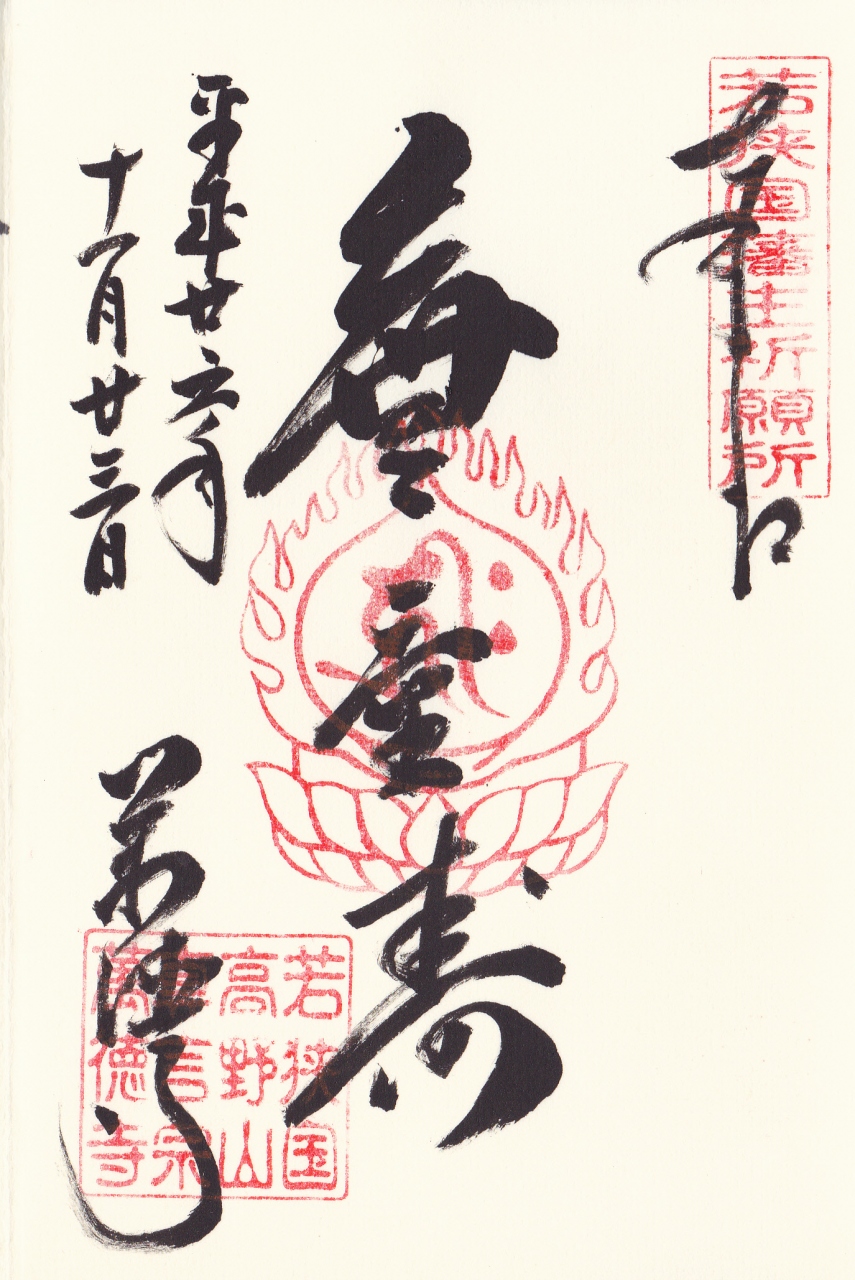 若狭国藩主祈願所
奉拝
無量寿
平成廿六年
十一月廿三日
萬徳寺
若狭国
高野山
真言宗
萬徳寺